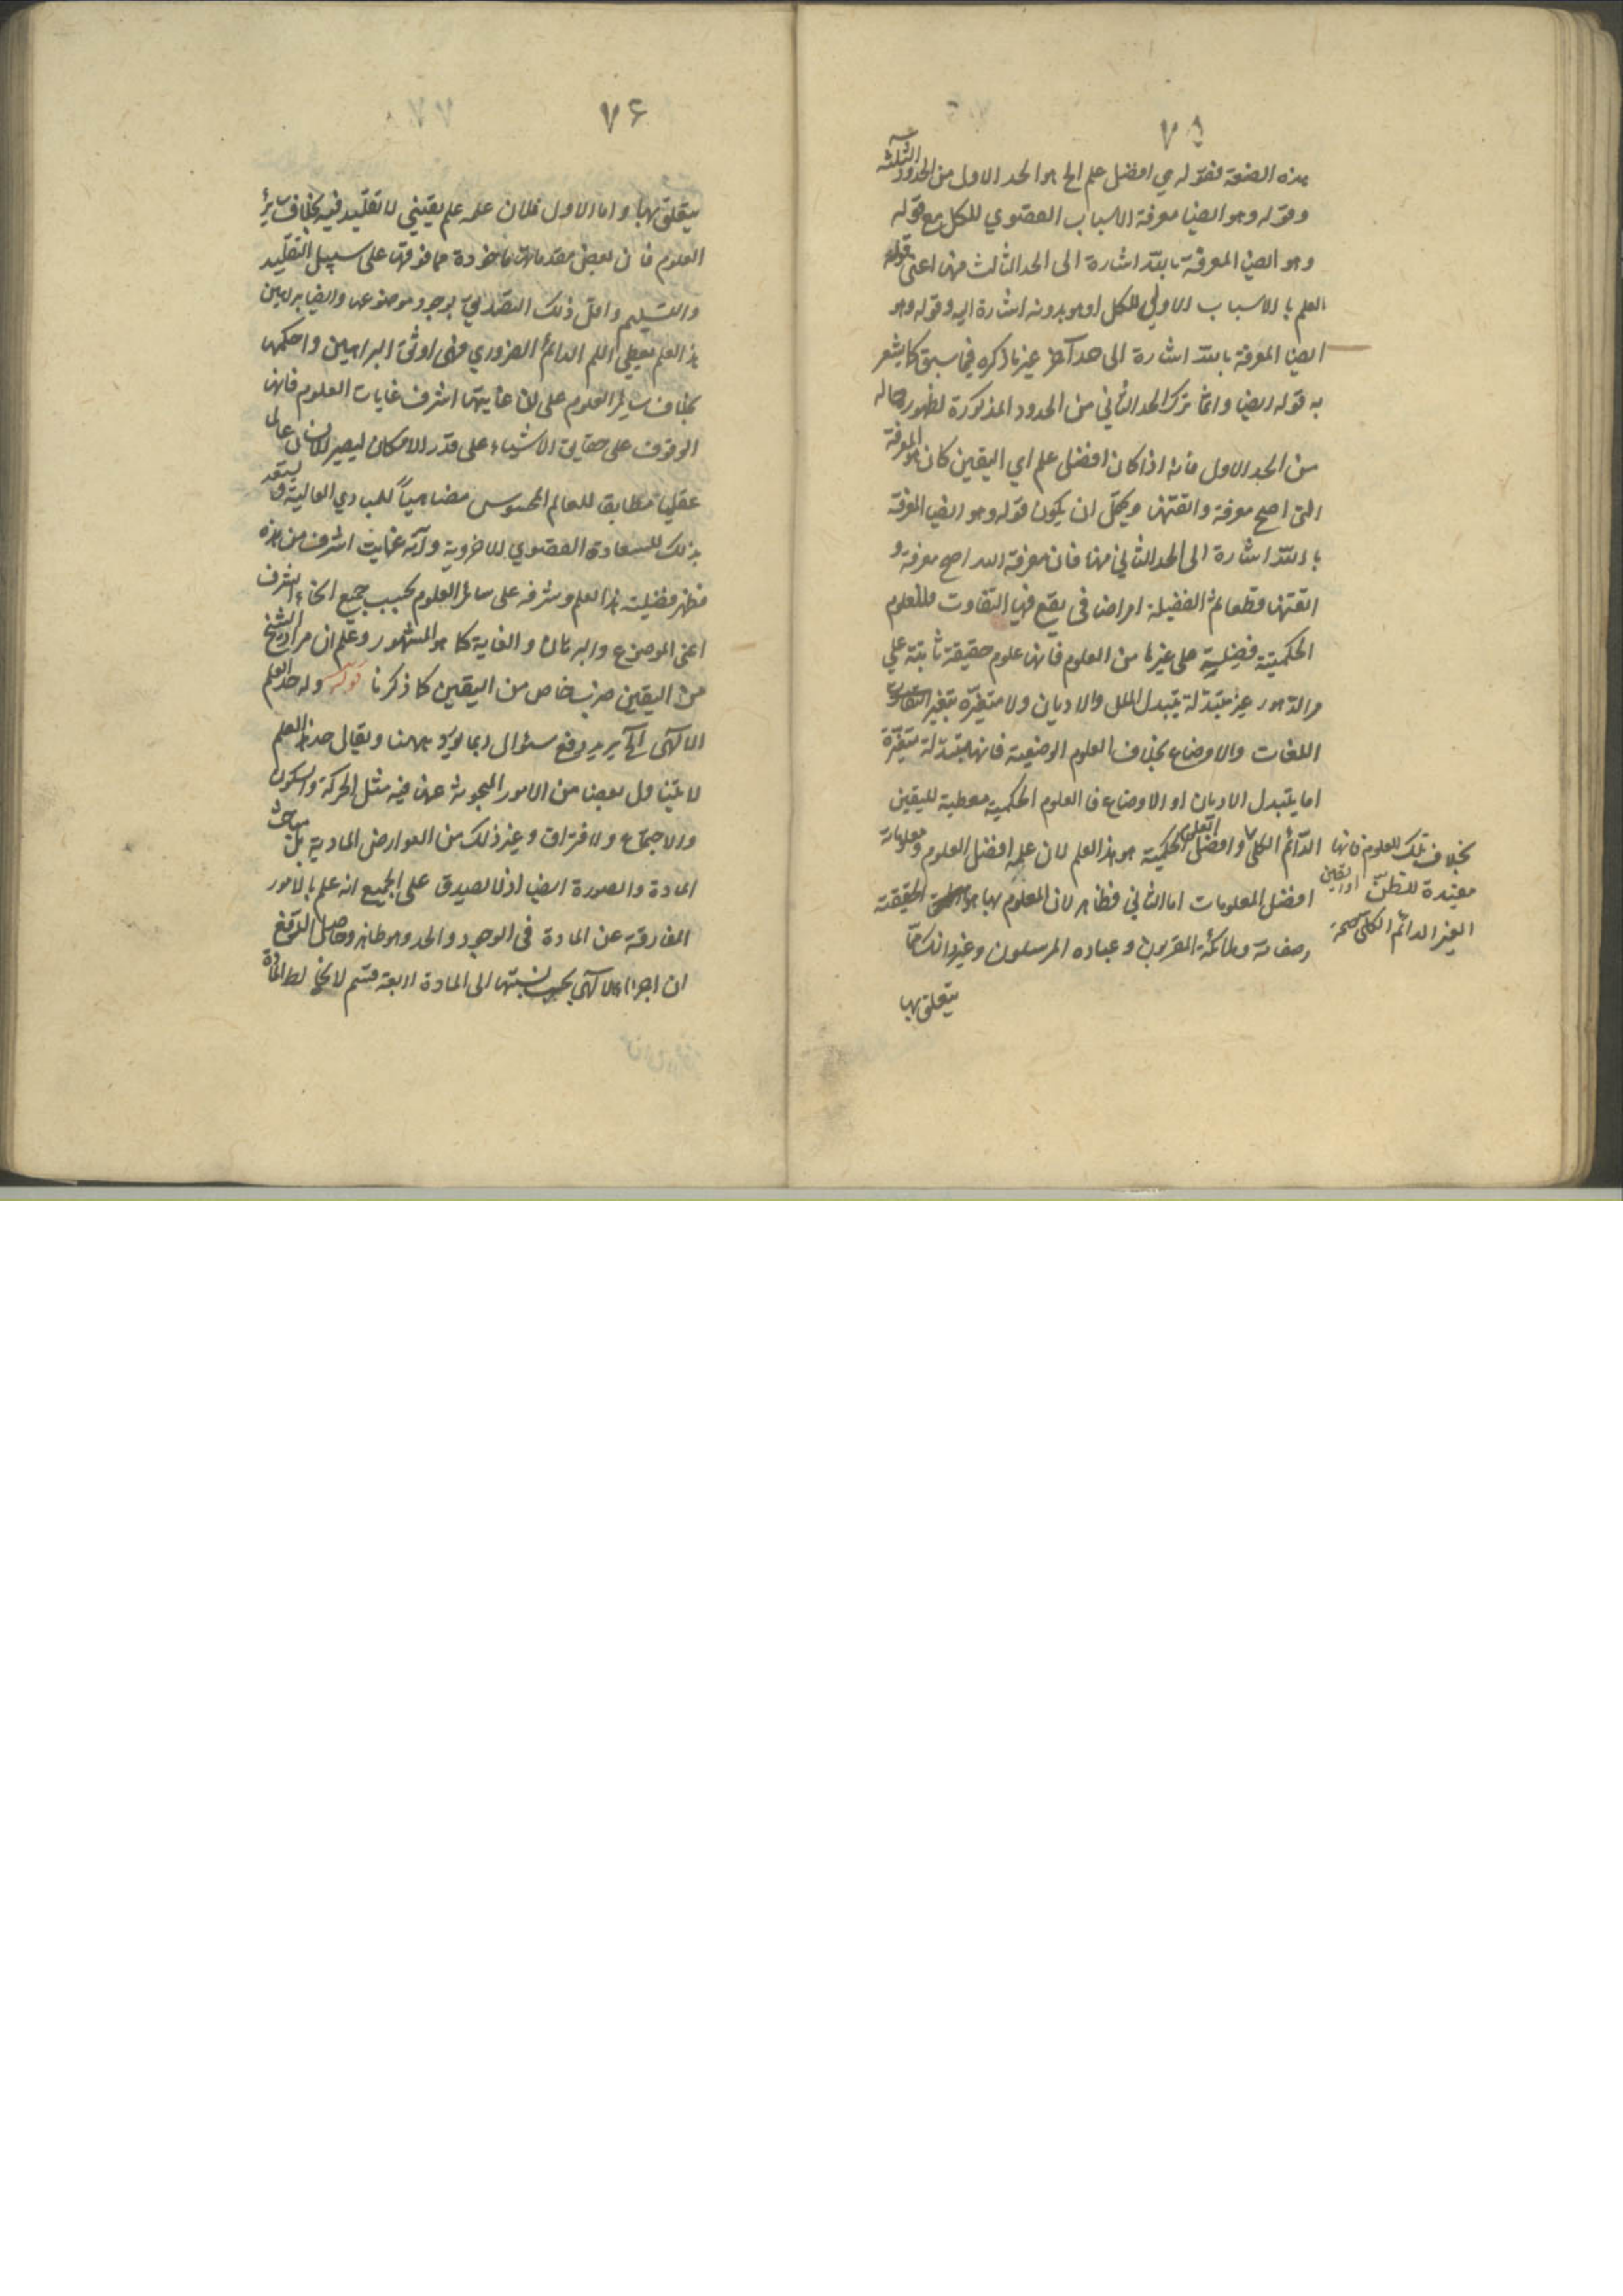 ٧٥
هذه الصنعة فقوله هي افضل علم الخ هو الحد الاول من الحدود الثلثة
وقوله وهو ايضا معرفة الاسباب القصوي للكل مع قوله
وهو ايضا المعرفة بالله اشارة الى الحد الثالث منها اعني قوله
العلم بالاسباب الاولي للكل او هو بدونه اشارة اليه وقوله وهو
ايضا المعرفة بالله اشارة الى حد آخر غير ما ذكره فيما سبق كما يشعر
به قوله ايضا وانما ترك الحد الثاني من الحدود المذكورة لظهور حاله
من الحد الاول فانه اذا كان افضل علم اي اليقين كان هو المعرفة
التى اصح معرفة واتقنها ويحتمل ان يكون قوله وهو ايضا المعرفة
بالله اشارة الى الحد الثاني منها فان معرفة الله اصح معرفة و
اتقنها قطعا ثم الفضيلة امر اضافى يقع فيها التفاوت فللعلوم
الحكميّة فضيلة على غيرها من العلوم فانها علوم حقيقة ثابتة علي
مر الدهور غير متبدلة بتبدل الملل والاديان ولا متغيّرة بتغير
اللغات والاوضاع بخلاف العلوم الوضعية فانها متبدلة متغيّرة
اما بتبدل الاديان او الاوضاع فالعلوم الحكمية معطية لليقين
الدّائم الكلي وافضل العلوم الحكمية هو هذا العلم لان علمه افضل العلوم ومعلوماته
افضل المعلومات اما الثاني فظاهر لان المعلوم بها هو الحقيقة
وصفاته وملائكته المقربون وعباده المرسلون وغير ذلك ممّا
يتعلق بها
بخلاف تلك العلوم فانها
مفيدة للظنّ او اليقين
الغير الدائم الكلّى صحه
٧٦
يتعلق بها واما الاول فلان علمه علم يقيني لا تقليد فيه بخلاف سائر
العلوم فان بعض مقدماتها مأخوذة مما فوقها على سبيل التقليد
والتسليم واقل ذلك التصديق بوجود موضوعها وايضا براهين
هذا العلم يعطي اللم الدائم الضروري فهى اوثق البراهين واحكمها
بخلاف سائر العلوم على ان غايتها اشرف غايات العلوم فانها
الوقوف على حقايق الاشياء على قدر الامكان ليصير الانسان عالما
عقليا مطابقا للعالم المحسوس مضاهياً للمبادي العالية ويستعد
بذلك للسعادة القصوي الاخروية واية غاية اشرف من هذه
فظهر فضيلة هذا العلم وشرفه على سائر العلوم بحسب جميع انحاء الشرف
اعنى الموضوع والبرهان والغاية كما هو المشهور وعلم ان مراد الشيخ
من اليقين ضرب خاص من اليقين كما ذكرنا قوله وله حد العلم
الالهى الخ يريد دفع سئوال ربما يورد ههنا ويقال حد العلم
لا يتناول بعضا من الامور المبحوثة عنها فيه مثل الحركة والسكون
والاجتماع والافتراق وغير ذلك من العوارض المادية بل مباحث
المادة والصورة ايضا اذ لا يصدق على الجميع انه علم بالامور
المفارقة عن المادة فى الوجود والحد وهو ظاهر وحاصل الدفع
ان اجزاء الالهى بحسب نسبتها الى المادة اربعة قسم لا يخالط المادة